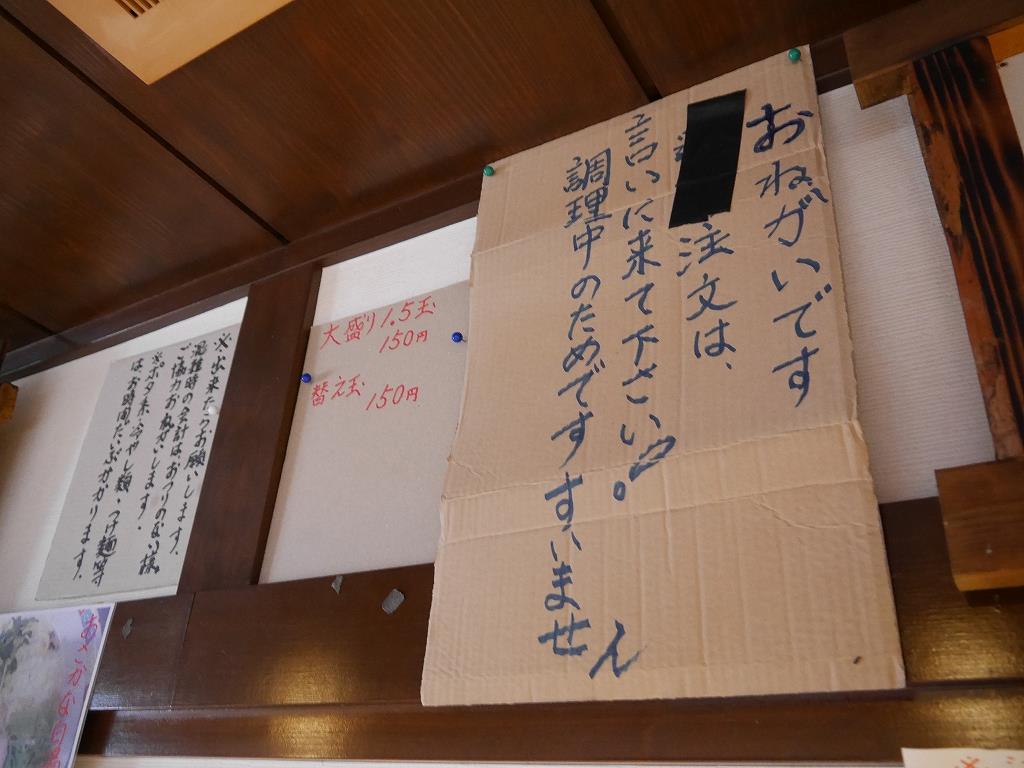 おねがいです
注文は、
言いに来て下さい。
調理中のためですすいません
大盛り1.5玉
150円
替え玉 150円
※出来たらお願いします、
混雑時の会計はおつりのない様
ご協力おねがいします。
※ボタ糸・冷やし麺・つけ麺等
は、お時間だいぶかかります。